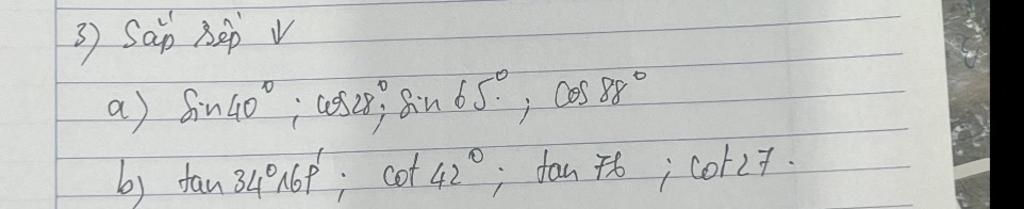 3) Sắp xếp ↓
a) sin 40°; cos 28°; sin 65°; cos 88°
b) tan 34°16'; cot 42°; tan 76; cot 27.